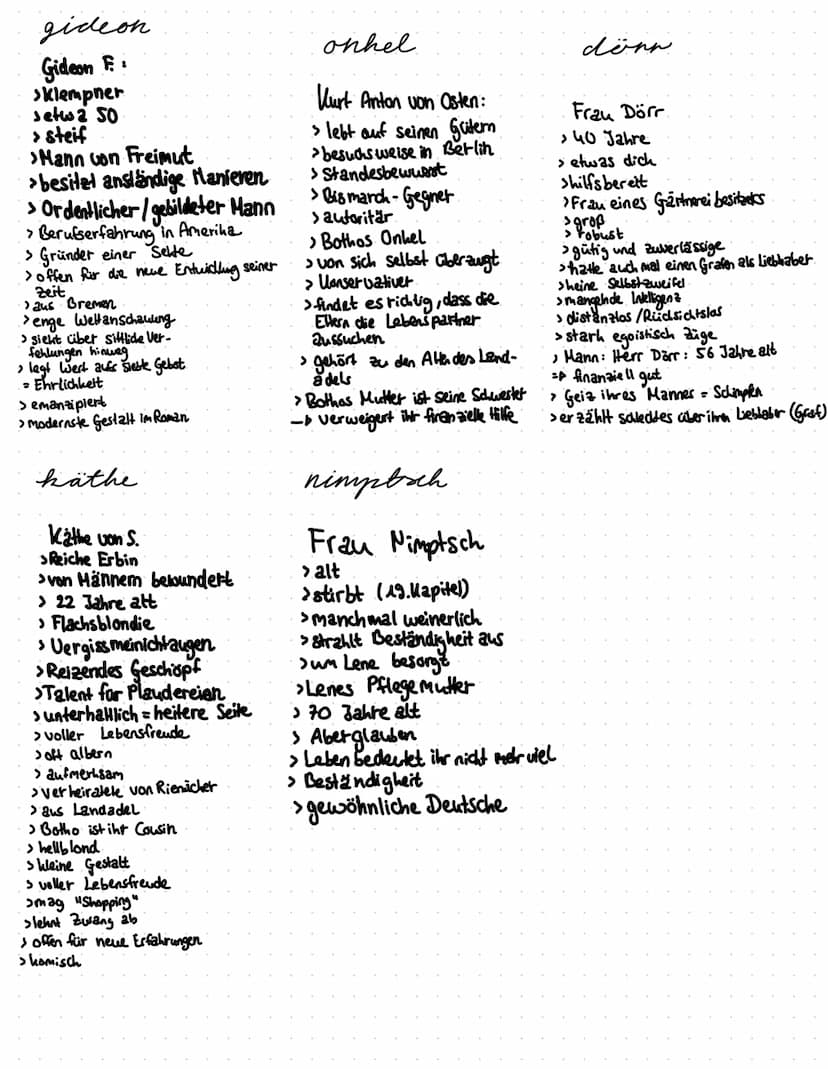 gideon
Gideon F. :
>Klempner
>etwa 50
> steif
>Mann von Freimut
>besitzt anständige Manieren
> Ordentlicher/gebildeter Mann
> Berufserfahrung in Amerika
> Gründer einer Sekte
>offen für die neue Entwicklung seiner
Zeit
>aus Bremen
>enge Weltanschauung
> sieht über sittliche Ver-
fehlungen hinweg
> legt Wert aufs siebte Gebot
= Ehrlichkeit
>emanzipiert
>modernste Gestalt im Roman
onkel
Kurt Anton von Osten:
> lebt auf seinen Gütern
>besuchsweise in Berlin
> Standesbewusst
>Bismarck-Gegner
>autoritär
> Bothos Onkel
>von sich selbst überzeugt
> Konservativer
>findet es richtig, dass die
Eltern die Lebenspartner
aussuchen
> gehört zu den Alten des Land-
adels
>Bothos Mutter ist seine Schwester
→ verweigert ihr finanzielle Hilfe
dörr
Frau Dörr
> 40 Jahre
> etwas dick
>hilfsbereit
>Frau eines Gärtnerei besitzers
>groß
> robust
>gütig und zuverlässige
>hatte auch mal einen Grafen als Liebhaber
>keine Selbstzweifel
>mangelnde Intelligenz
>distanzlos/Rücksichtslos
>stark egoistisch Züge
> Mann: Herr Dörr: 56 Jahre alt
=> finanziell gut
> Geiz ihres Mannes = Schimpfen
>erzählt schlechtes über ihren Liebhaber (Graf)
käthe
Käthe von S.
>Reiche Erbin
>von Männern bewundert
> 22 Jahre alt
> Flachsblondie
> Vergissmeinichtaugen
>Reizendes Geschöpf
>Talent für Plaudereien
>unterhaltlich = heitere Seite
>voller Lebensfreude
>oft albern
> aufmerksam
>verheiratete von Rienäcker
> aus Landadel
> Botho ist ihr Cousin
> hellblond
>kleine Gestalt
> voller Lebensfreude
>mag "Shopping"
>lehnt Zwang ab
> offen für neue Erfahrungen
>komisch
nimptsch
Frau Nimptsch
>alt
>stirbt (19.Kapitel)
>manchmal weinerlich
>strahlt Beständigkeit aus
>um Lene besorgt
>Lenes Pflegemutter
> 70 Jahre alt
> Aberglauben
> Leben bedeutet ihr nicht mehr viel
> Beständigkeit
>gewöhnliche Deutsche